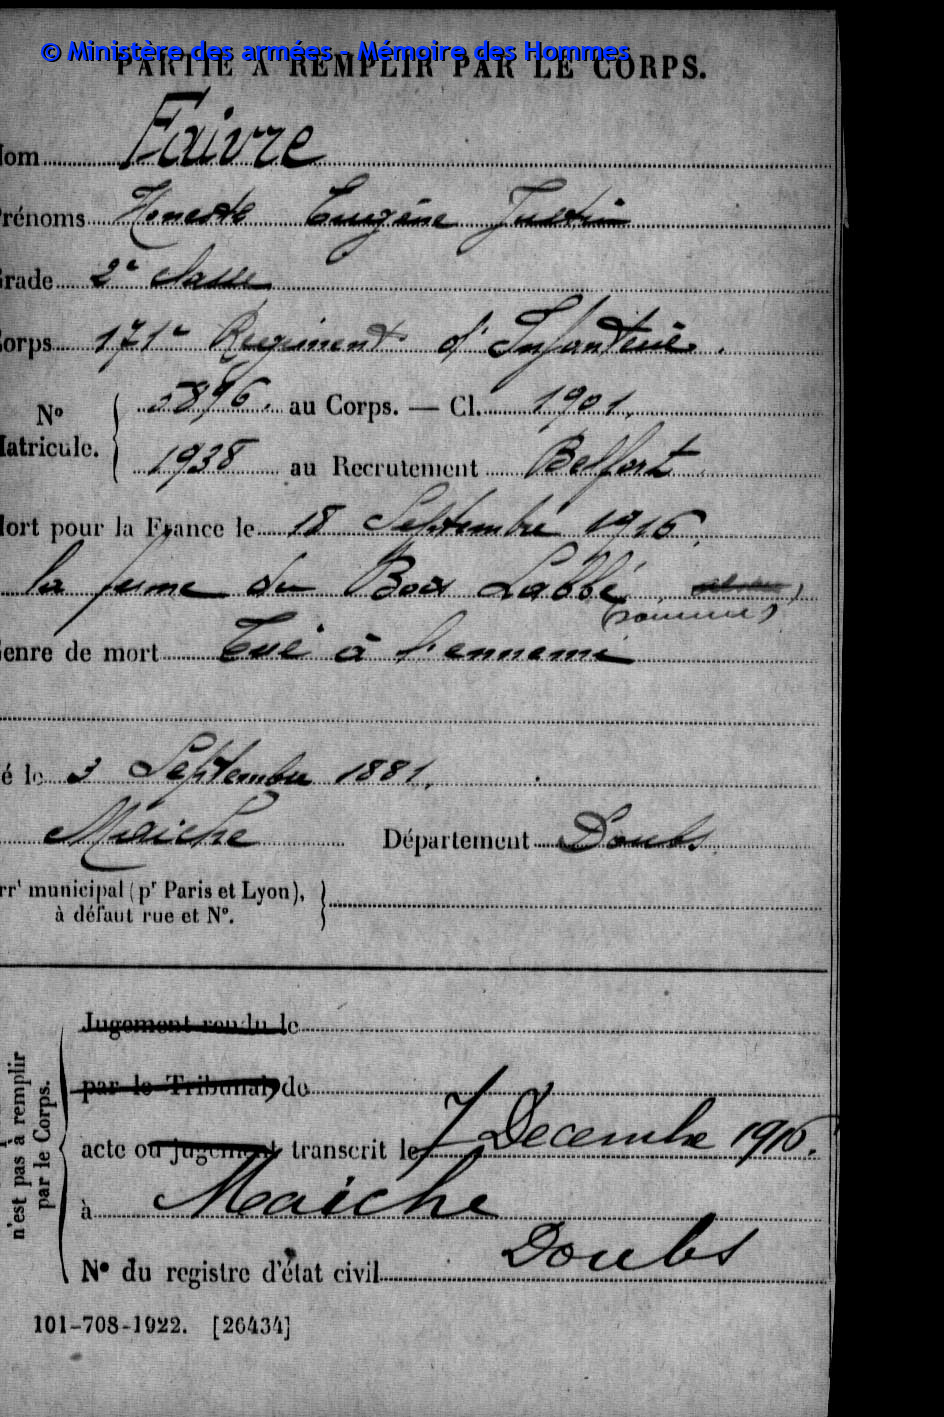 © Ministère des armées - Mémoire des Hommes
PARTIE A REMPLIR PAR LE CORPS.
Nom Faivre
Prénoms Eugène Justin
Grade 2e classe
Corps 171e Régiment d'Infanterie.
No Matricule. 5896. au Corps. — Cl. 1901.
1938 au Recrutement Belfort
Mort pour la France le 18 Septembre 1916.
la ferme du Bois Labbé
(Somme)
Genre de mort Tué à l'ennemi
né le 3 Septembre 1881.
Maiche Département Doubs
arrt municipal (pr Paris et Lyon),
à défaut rue et No.
Jugement rendu le
par le Tribunal de
acte ou jugement transcrit le 7 Decembre 1916.
à Maiche
Doubs
No du registre d'état civil
n'est pas à remplir
par le Corps.
101-708-1922. [26434]